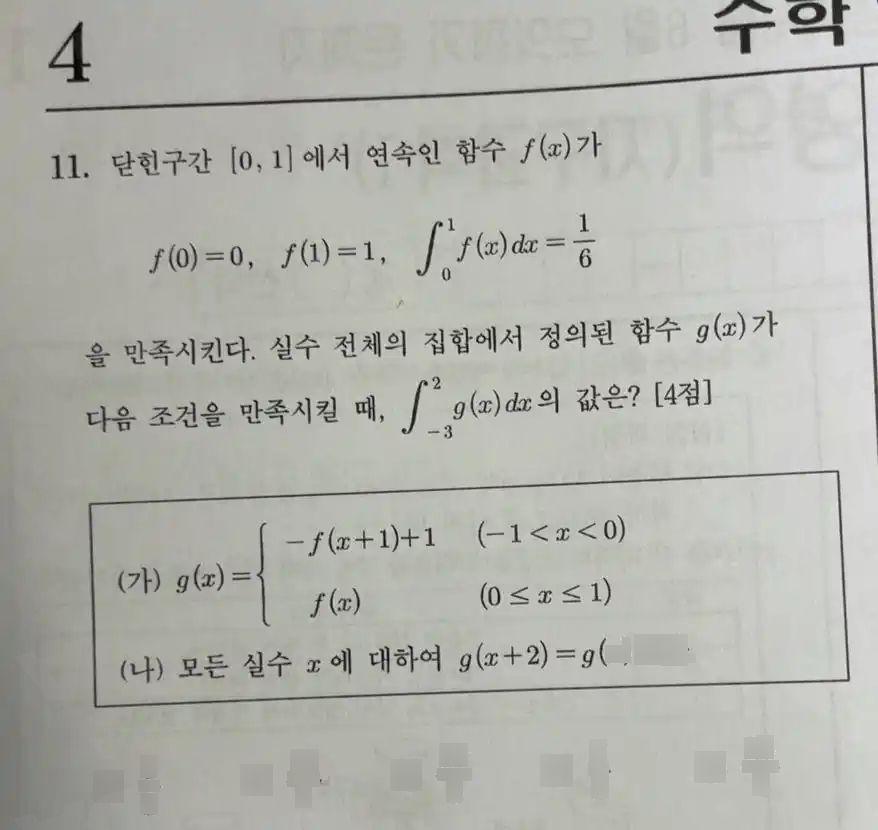 4
수학
11. 닫힌구간 [0, 1]에서 연속인 함수 f(x)가
f(0)=0, f(1)=1, ∫_0^1 f(x)dx = 1/6
을 만족시킨다. 실수 전체의 집합에서 정의된 함수 g(x)가
다음 조건을 만족시킬 때, ∫_{-3}^2 g(x)dx의 값은? [4점]
(가) g(x)={ -f(x+1)+1 (-1<x<0)
f(x) (0≤x≤1)
(나) 모든 실수 x에 대하여 g(x+2)=g(